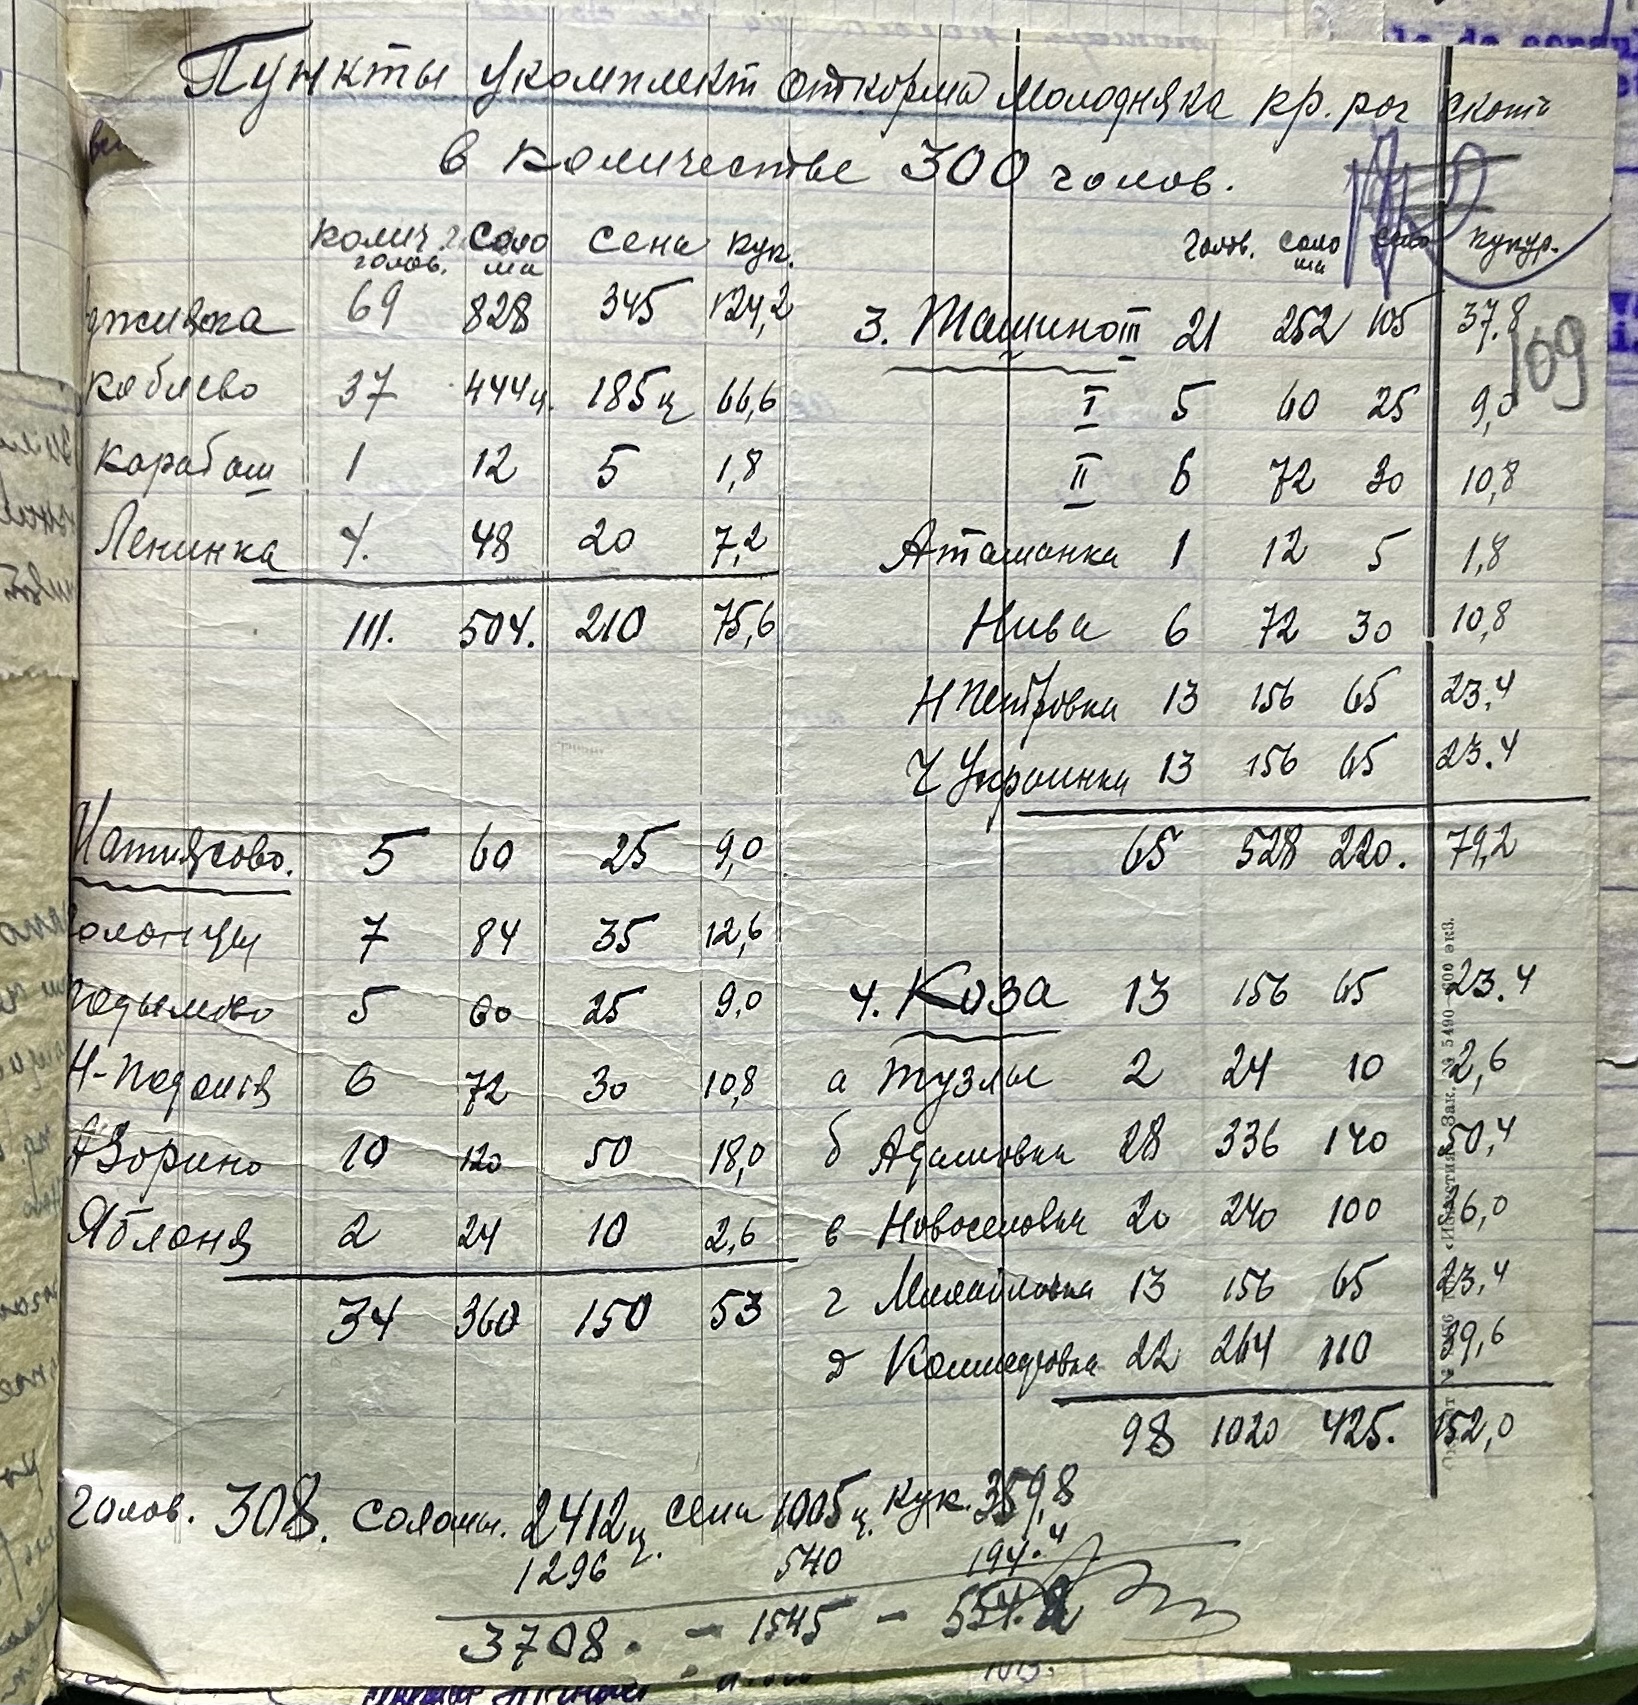 Пункты укомплект откорма молодняка кр. рог скота
в количестве 300 голов.
колич. голов. соло ма сена кук.
69 828 345 124,2
кобиево 37 444ц. 185ц 66,6
Карабаш 1 12 5 1,8
Ленинка 4. 48 20 7,2
111. 504. 210 75,6
5 60 25 9,0
7 84 35 12,6
5 60 25 9,0
6 72 30 10,8
10 120 50 18,0
Яблоня 2 24 10 2,6
34 360 150 53
голов. соло ма сено кукур.
109
3. Ташино III 21 252 105 37.8
I 5 60 25 9,0
II 6 72 30 10,8
Атаманка 1 12 5 1,8
Нива 6 72 30 10,8
Н Петровка 13 156 65 23.4
Ч Украинка 13 156 65 23.4
65 528 220. 79,2
4. Коза 13 156 65 23.4
а Тузлы 2 24 10 2,6
б Адамовка 28 336 140 50,4
в Новоселовка 20 240 100 36,0
г Михайловка 13 156 65 23,4
д 22 264 110 39,6
98 1020 425. 152,0
голов. 308. соломы. 2412ц. сена 1005ц. кук. 359,8
1296 540 194.4
3708. - 1545 -